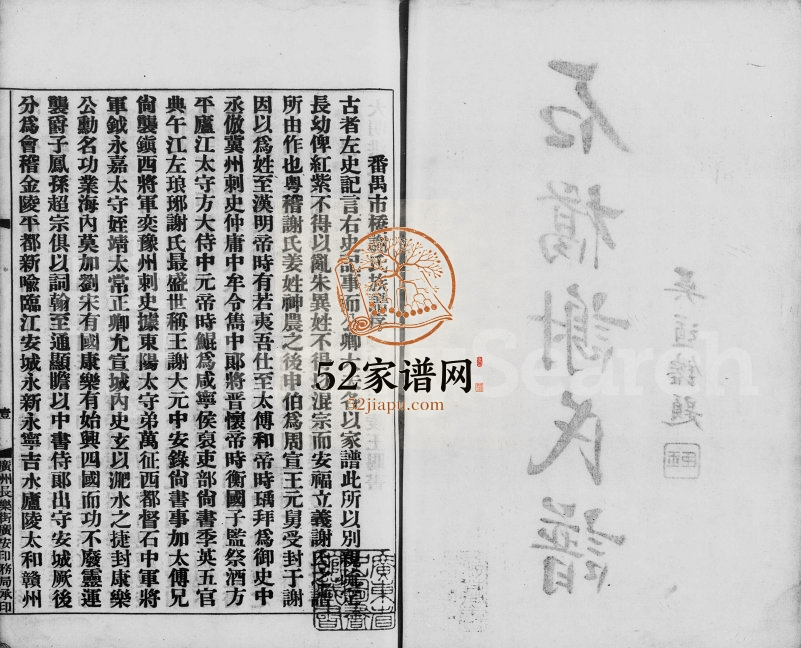 石橋謝氏譜
吳道鎔題
番禺市橋謝氏族譜序
古者左史記言右史記事而公卿大夫各以家譜此所以別親疏定
長幼俾紅紫不得以亂朱異姓不得混宗而安福立義謝氏之譜
所由作也粵稽謝氏姜姓神農之後申伯爲周宣王元舅受封于謝
因以爲姓至漢明帝時有若夷吾仕至太傅和帝時瑀拜爲御史中
丞倣冀州刺史仲庸中牟令雋中郎將晋懷帝時衡國子監祭酒方
平廬江太守方大侍中元帝時鯤爲咸寧侯裒吏部尙書季英五官
典午江左琅琊謝氏最盛世稱王謝大元中安錄尙書事加太傅兄
尙襲鎮西將軍奕豫州刺史據東陽太守弟萬征西都督石中軍將
軍鉞永嘉太守姪靖太常正卿尤宣城內史玄以淝水之捷封康樂
公勳名功業海內莫加劉宋有國康樂有始興四國而功不廢靈運
襲爵子鳳孫超宗俱以詞翰至通顯瞻以中書侍郎出守安城厥後
分爲會稽金陵平都新喻臨江安城永新永寧吉水廬陵太和贛州
壹
廣州長樂街廣安印務局承印
52家谱网
52jiapu.com